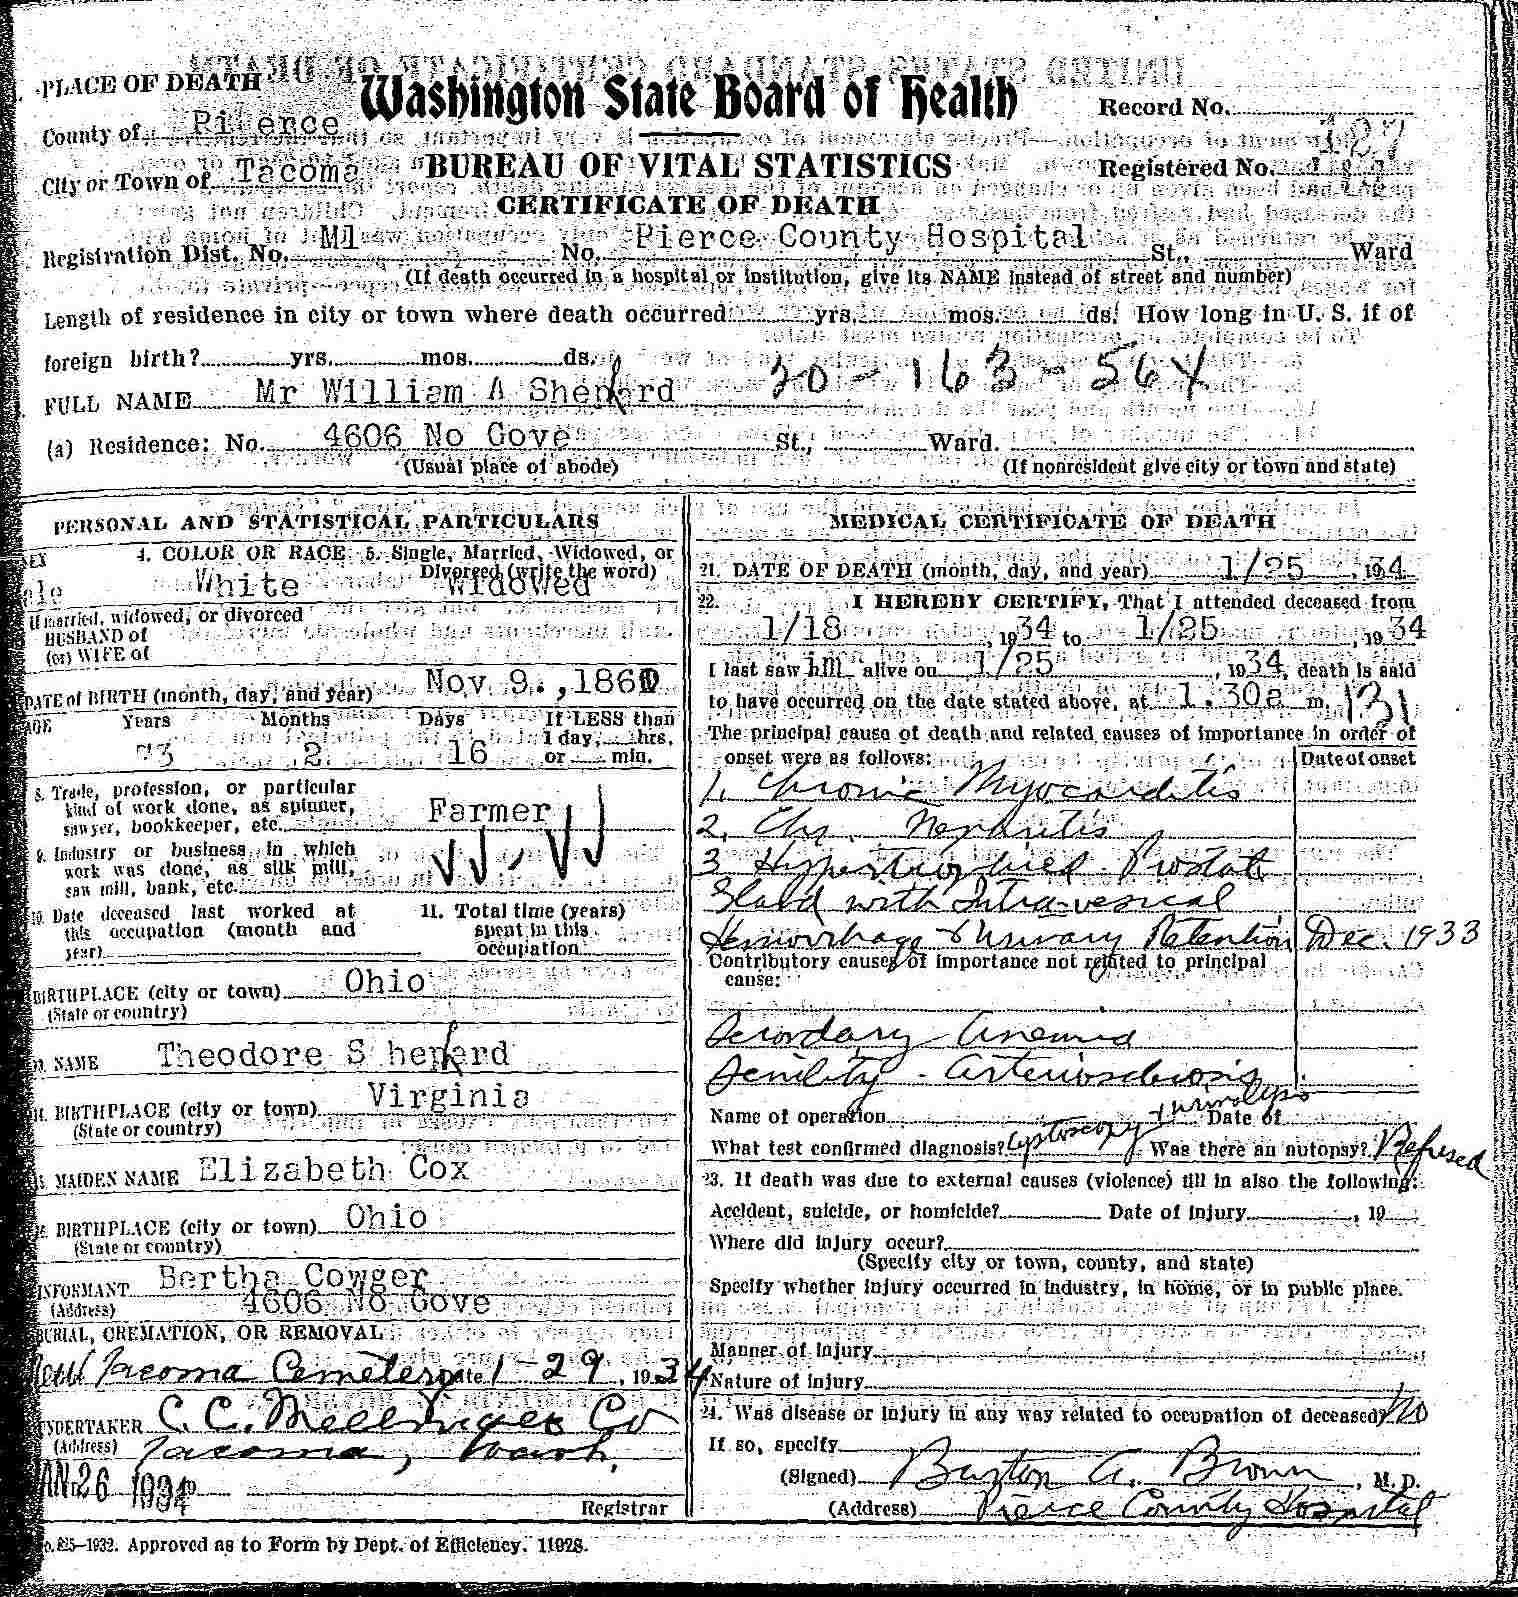 PLACE OF DEATH
Washington State Board of Health
Record No.
County of Pierce
127
City or Town of Tacoma
BUREAU OF VITAL STATISTICS
Registered No.
CERTIFICATE OF DEATH
Registration Dist. No. M1 No. Pierce County Hospital St., Ward
(If death occurred in a hospital or institution, give its NAME instead of street and number)
Length of residence in city or town where death occurred yrs. mos. ds. How long in U. S. if of
foreign birth? yrs. mos. ds.
20-163-564
FULL NAME Mr William A Shepard
(a) Residence: No. 4606 No Gove St., Ward.
(Usual place of abode) (If nonresident give city or town and state)
PERSONAL AND STATISTICAL PARTICULARS
4. COLOR OR RACE 5. Single, Married, Widowed, or
Divorced (write the word)
White Widowed
If married, widowed, or divorced
HUSBAND of
(or) WIFE of
DATE of BIRTH (month, day, and year) Nov 9., 1860
AGE Years Months Days If LESS than
1 day, hrs.
73 2 16 or min.
8. Trade, profession, or particular
kind of work done, as spinner,
sawyer, bookkeeper, etc. Farmer
9. Industry or business in which
work was done, as silk mill,
saw mill, bank, etc.
10. Date deceased last worked at
this occupation (month and
year)
11. Total time (years)
spent in this
occupation
BIRTHPLACE (city or town) Ohio
(State or country)
13. NAME Theodore Shepard
14. BIRTHPLACE (city or town) Virginia
(State or country)
MAIDEN NAME Elizabeth Cox
BIRTHPLACE (city or town) Ohio
(State or country)
INFORMANT Bertha Cowger
(Address) 4606 No Gove
BURIAL, CREMATION, OR REMOVAL
Tacoma Cemetery Date 1-29, 1934
UNDERTAKER C. C. Mellinger Co
(Address) Tacoma, Wash.
JAN 26 1934
Registrar
MEDICAL CERTIFICATE OF DEATH
21. DATE OF DEATH (month, day, and year) 1/25, 1934
22. I HEREBY CERTIFY, That I attended deceased from
1/18, 1934 to 1/25, 1934
I last saw him alive on 1/25, 1934, death is said
to have occurred on the date stated above, at 1.30a m. 131
The principal cause of death and related causes of importance in order of
onset were as follows: Date of onset
1. Chronic Myocarditis
2. Chr. Nephritis
3 Hypertrophied Prostate
Gland with Intravesical
Hemorrhage & Urinary Retention Dec. 1933
Contributory causes of importance not related to principal
cause:
Secondary Anemia
Senility - Arteriosclerosis
Name of operation Date of
What test confirmed diagnosis? Cystoscopy + urinalysis Was there an autopsy? Refused
23. If death was due to external causes (violence) fill in also the following:
Accident, suicide, or homicide? Date of injury , 19
Where did injury occur?
(Specify city or town, county, and state)
Specify whether injury occurred in industry, in home, or in public place.
Manner of injury
Nature of injury
24. Was disease or injury in any way related to occupation of deceased? No
If so, specify
(Signed) Burton A. Brown, M.D.
(Address) Pierce County Hospital
Approved as to Form by Dept. of Efficiency. 11928.